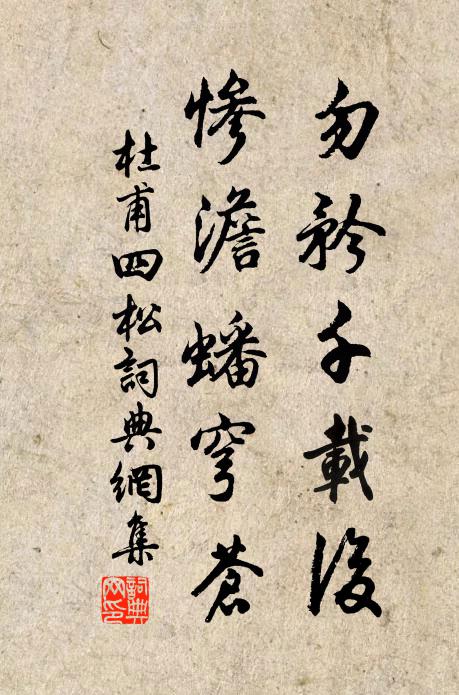 勿矜千載後
慘澹蟠穹蒼
杜甫四松詞典網集
詞典網印